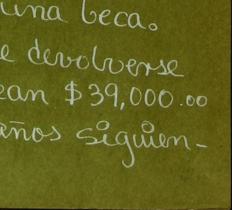 una beca.
e devolverse
ean $39,000.00
años siguien-